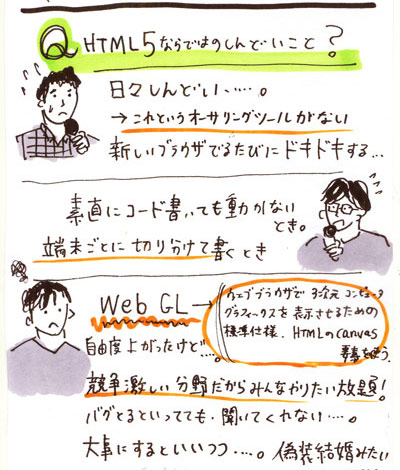 Q HTML5ならではのしんどいこと?
日々しんどい‥‥。
→これというオーサリングツールがない
新しいブラウザでるたびにドキドキする…
素直にコード書いても動かない
とき。
端末ごとに切り分けて書くとき
Web GL→
ウェブブラウザで3次元コンピュータ
グラフィックスを表示させるための
標準仕様。HTMLのcanvas
要素を使う。
自由度上がったけど…。
競争激しい分野だからみんなやりたい放題!
バグとるといってても・聞いてくれない‥‥。
大事にするといいつつ‥‥。偽装結婚みたい